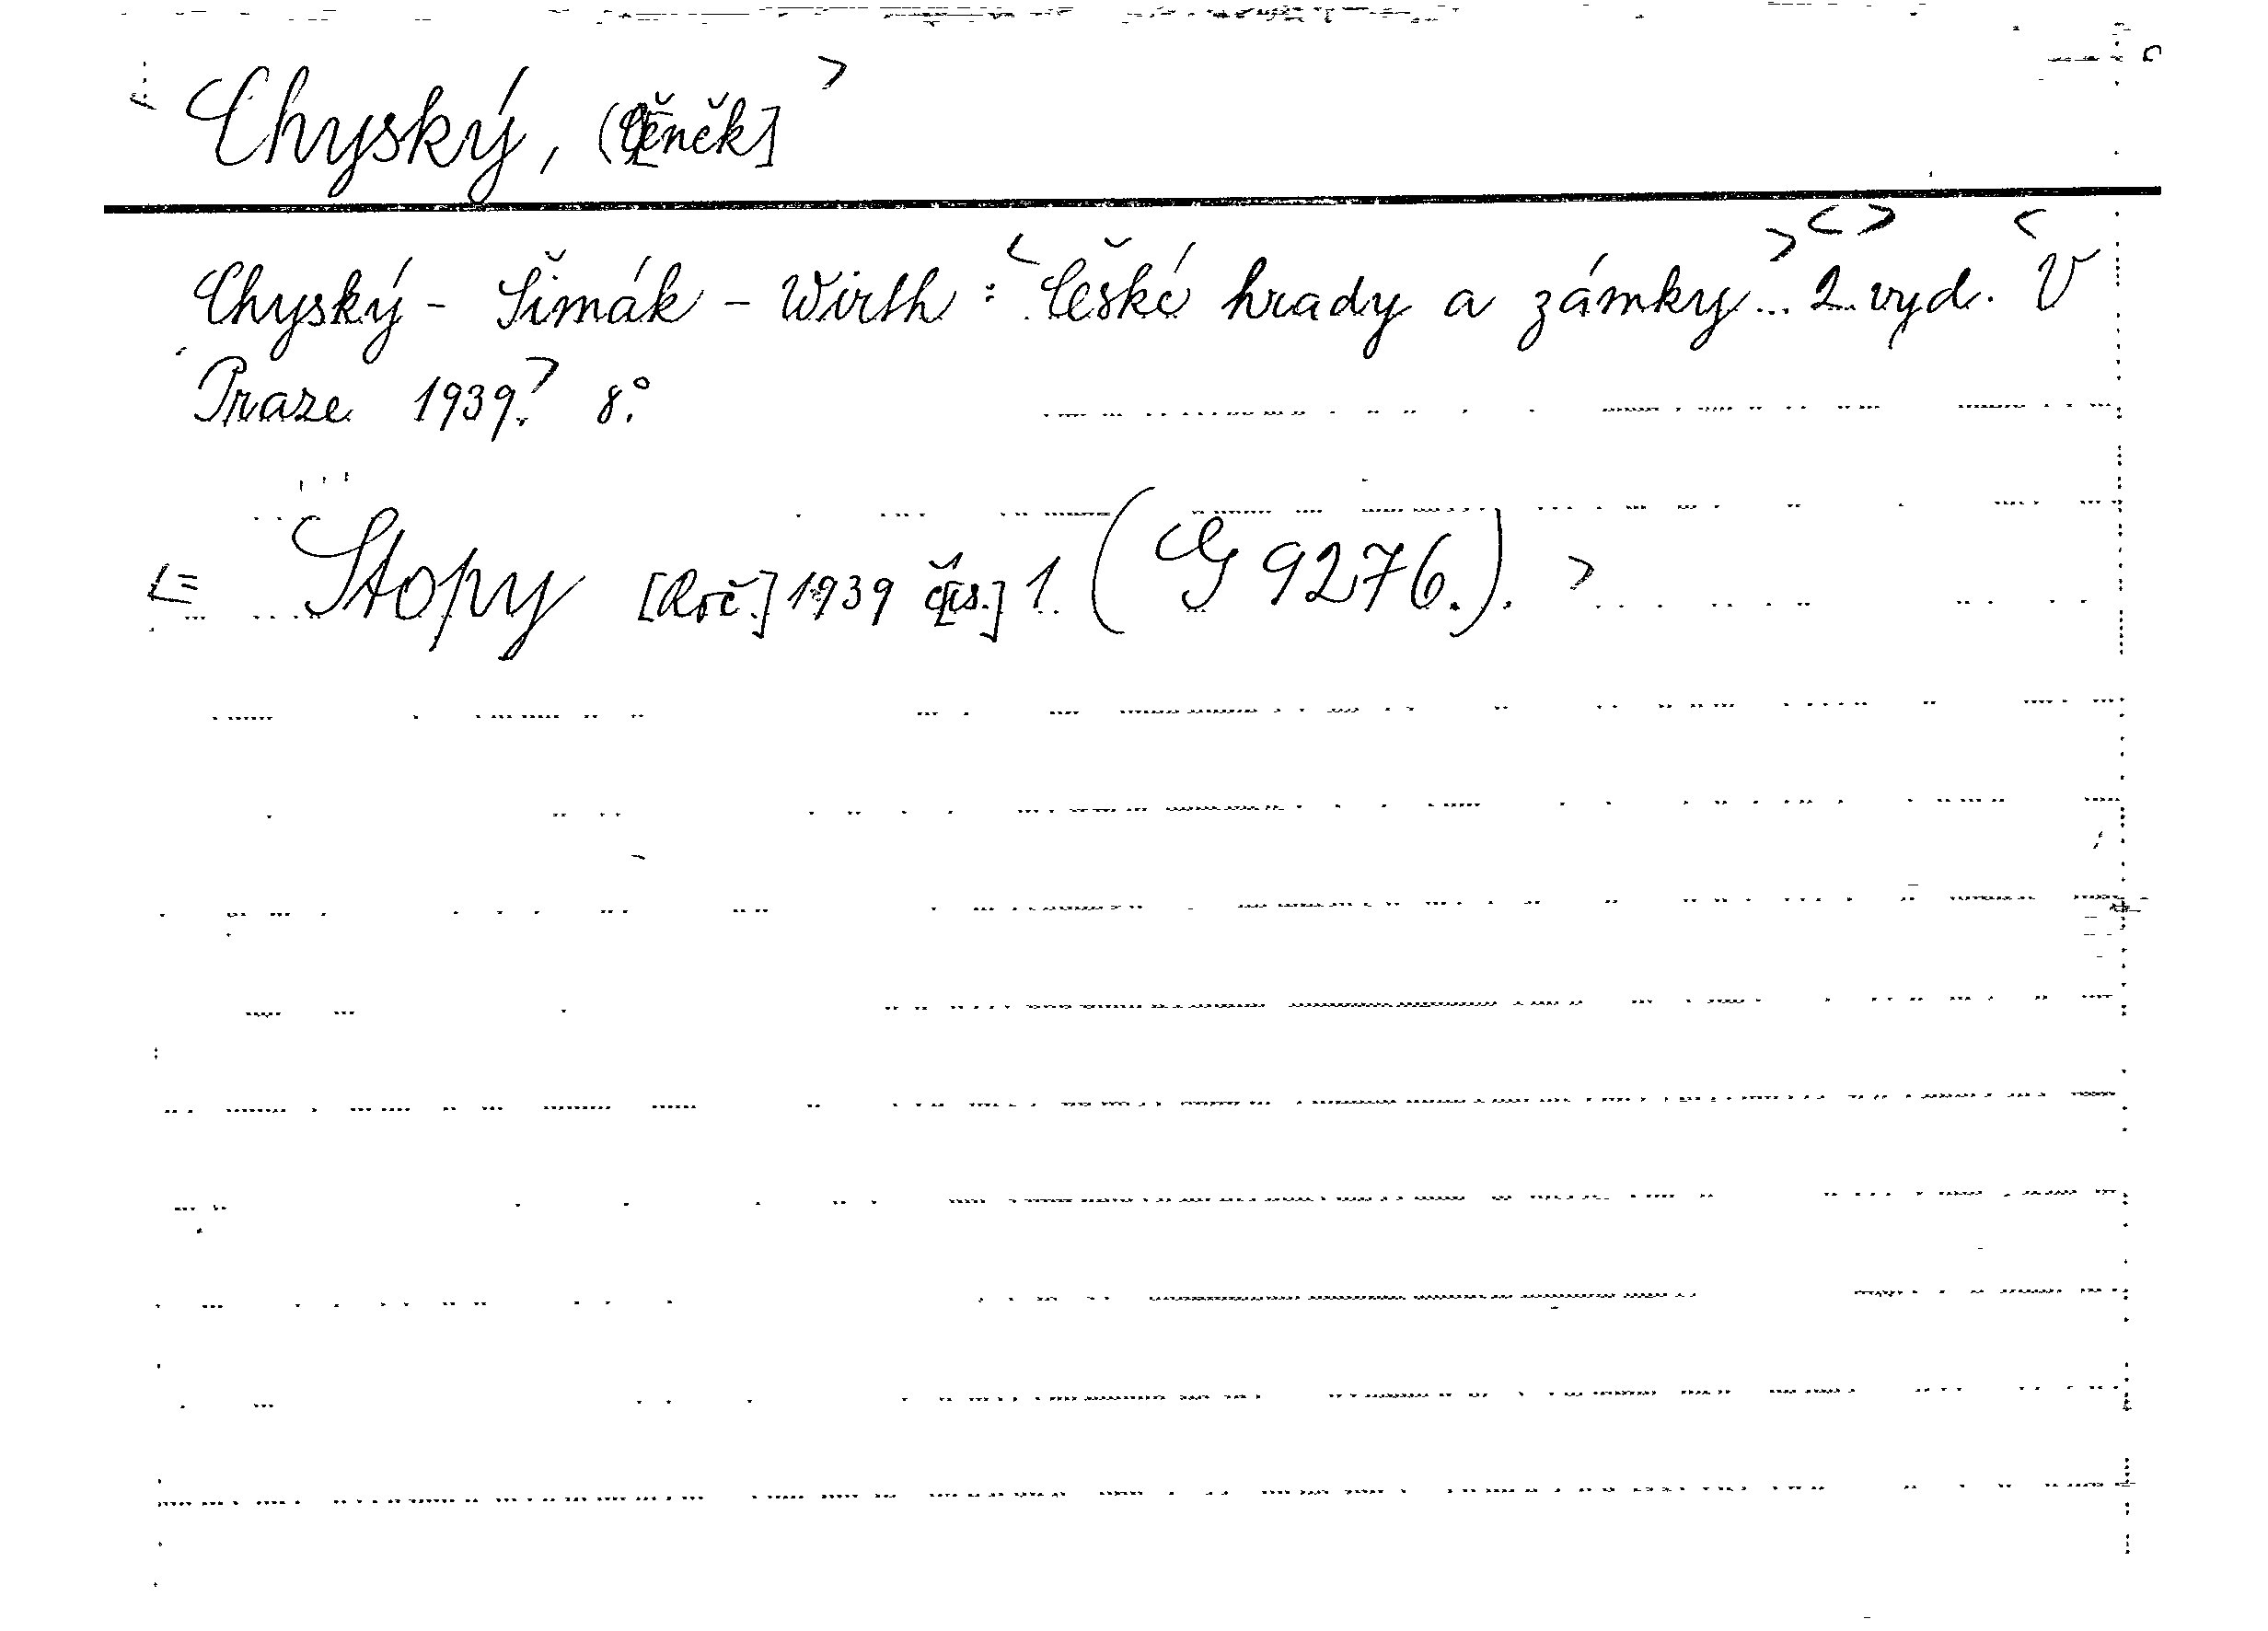 < Chyský, Č[eněk] >
Chyský - Šimák - Wirth : < České hrady a zámky... > < 2. vyd. > < V
Praze 1939. > 8°.
<= Stopy [Roč.] 1939 č[ís.] 1. (G 9276.). >